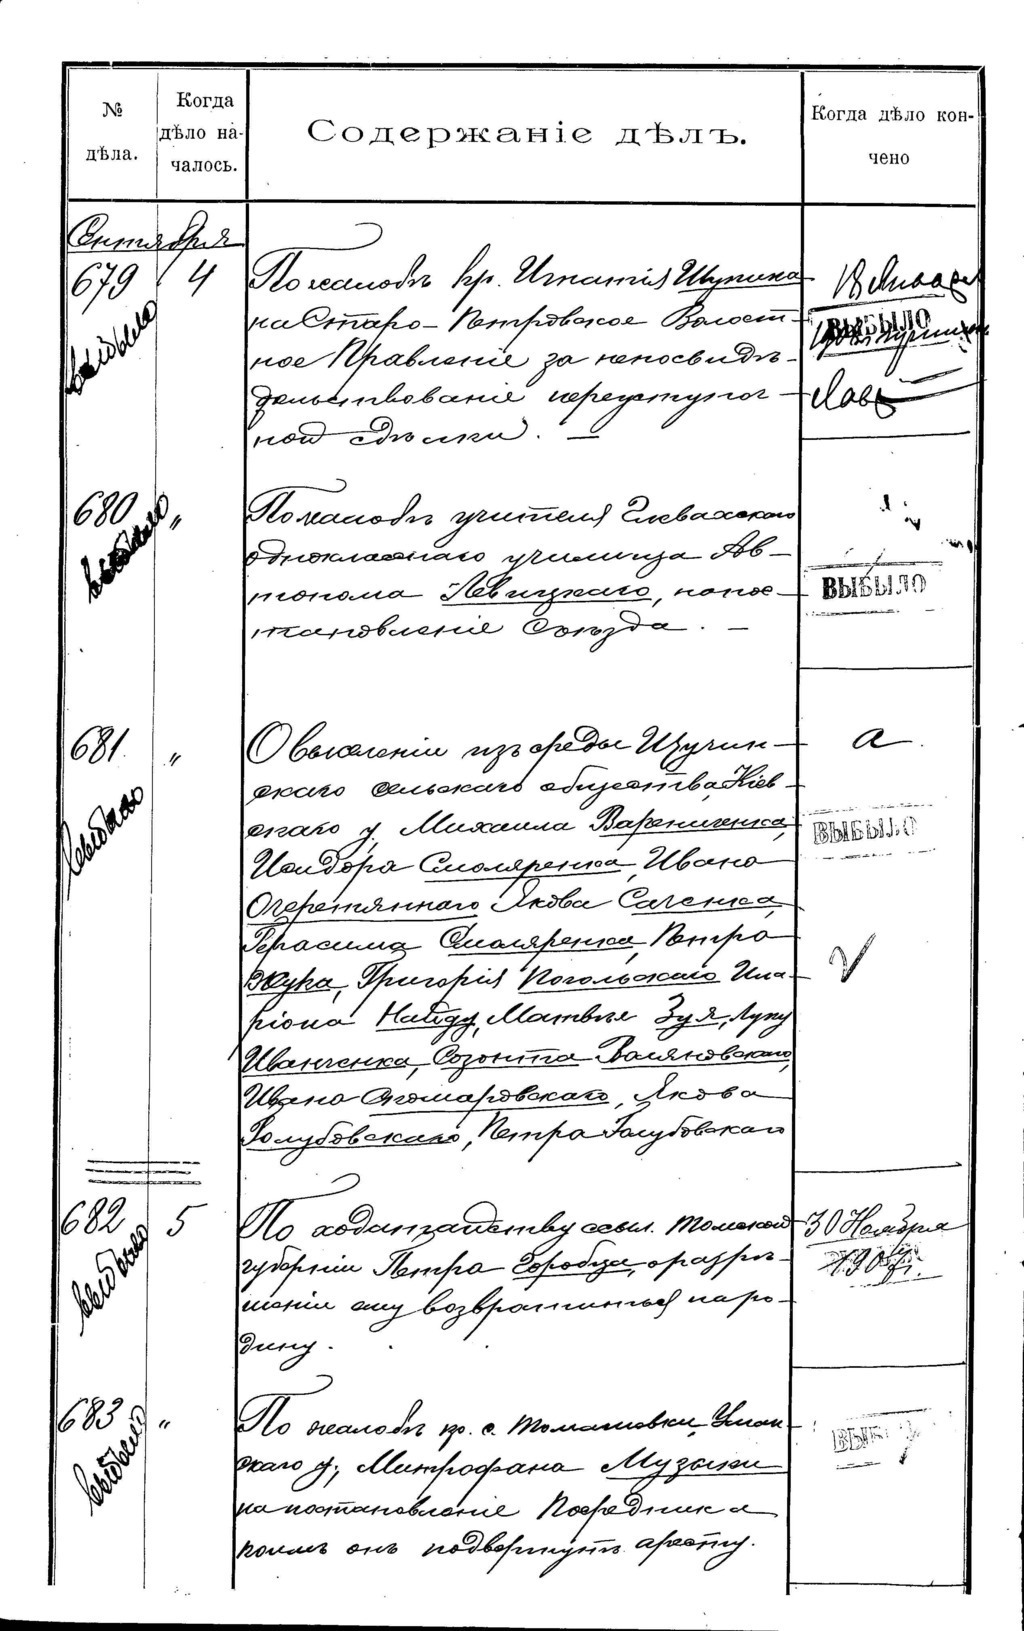 №
дѣла.
Когда
дѣло на-
чалось.
Содержаніе дѣлъ.
Когда дѣло кон-
чено
Сентября
679
4
выбыло
По жалобѣ кр. Игнатія
на Старо-Петровское Волост-
ное Правленіе за незасвидѣ-
тельствованіе переуступоч-
ной сдѣлки. —
ВЫБЫЛО
680
"
выбыло
По жалобѣ учителя Глевахскаго
однокласснаго училища Ав-
тонома Левицкаго, на пос-
тановленіе Съѣзда. —
ВЫБЫЛО
681
"
выбыло
О выселеніи изъ среды Щучин-
скаго сельскаго общества, Кіев-
скаго у. Михаила Варениченка,
Исидора Смоляренка, Ивана
Очеретяннаго, Якова Саченка,
Герасима Смоляренка, Петра
Жука, Григорія Погольскаго Ила-
ріона Найду, Матвѣя Зуя, Лупу
Иванченка, Созонта Воляновскаго,
Ивана, Якова
Голубовскаго, Петра Голубовскаго
а
ВЫБЫЛО
682
5
выбыло
По ходатайству ссыл. Томской
губерніи Петра Горобца, о разрѣ-
шеніи ему возвратиться на ро-
дину.
30 Ноября
683
"
выбыло
По жалобѣ кр. с. Томашовки, Уман-
скаго у., Митрофана Музыки
на постановленіе Посредника
коимъ онъ подвергнутъ аресту.